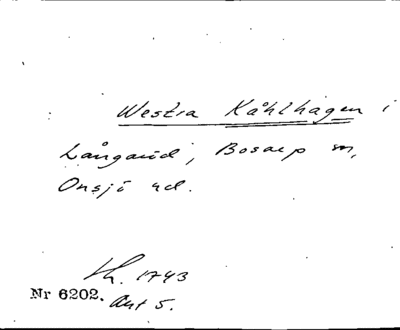 Westra Kåhlhagen i
Långaröd, Bosarp sn,
Onsjö hd.
Lh. 1743
Nr 6202. Akt 5.